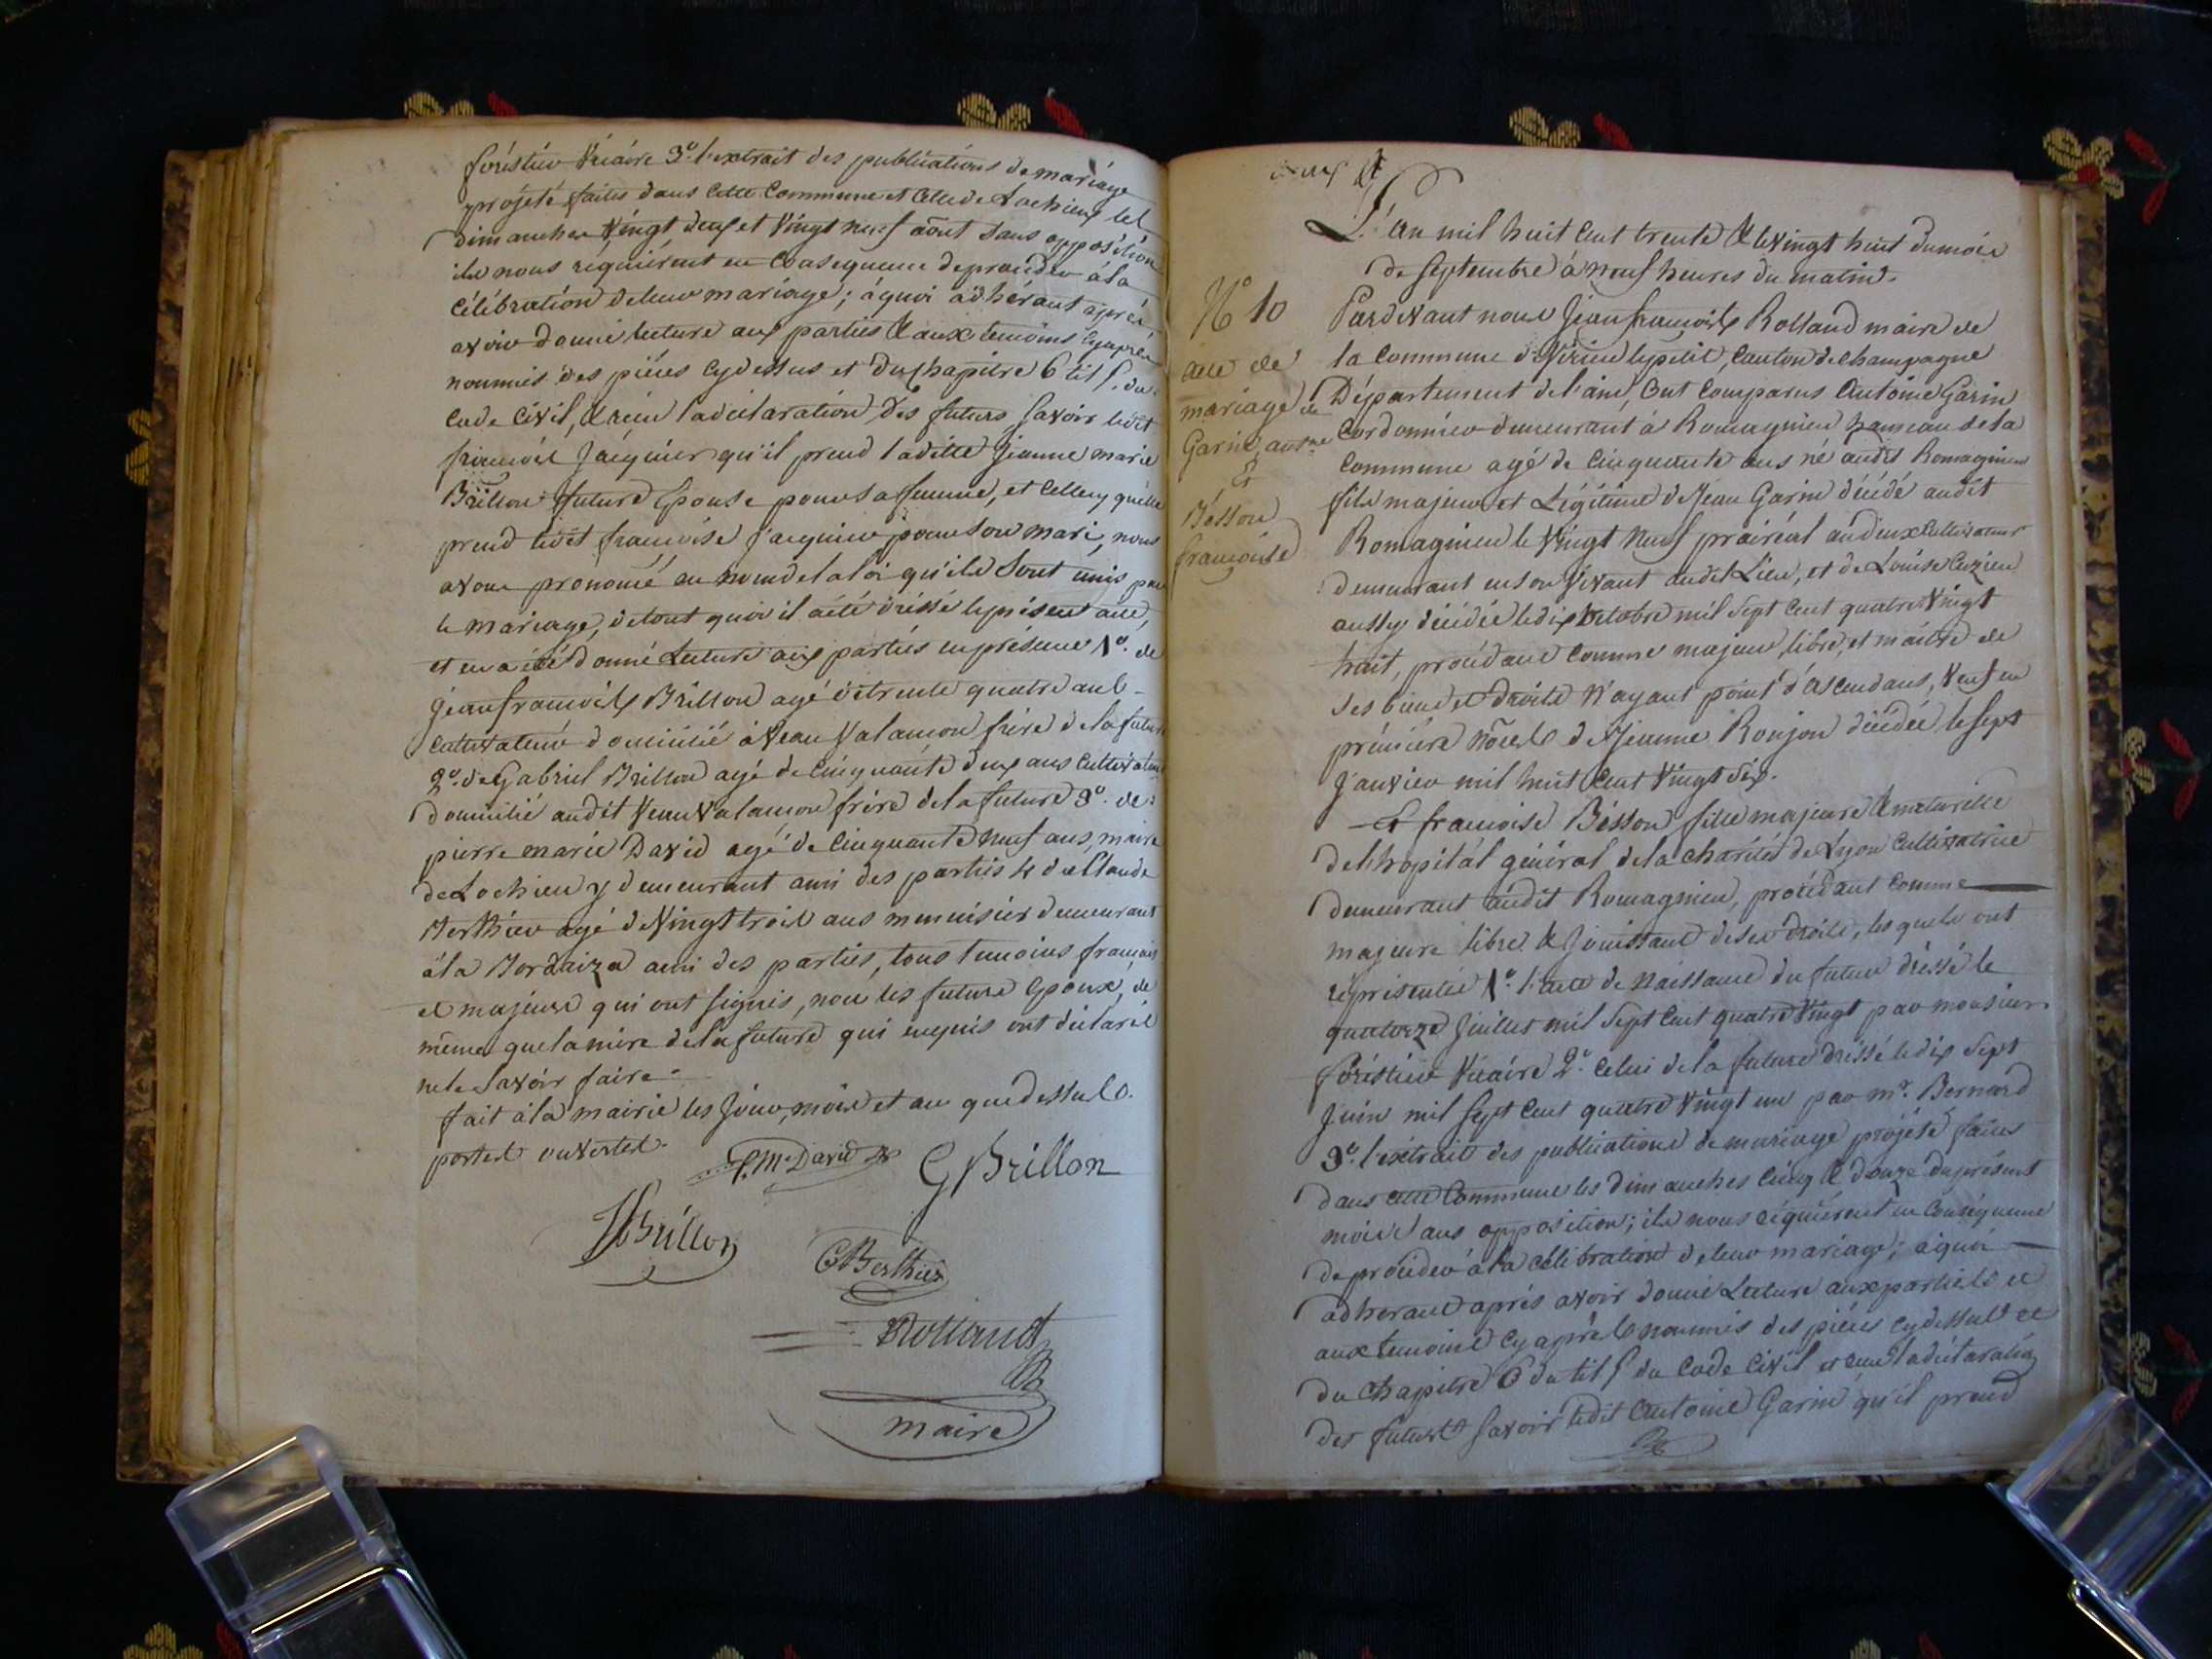 foréstier Vicaire 3º. l'extrait des publications de mariage
projeté faites dans cette Commune et celle de Lochieu les
dimanches Vingt deux et Vingt neuf aout sans opposition
ils nous réquiérent en Consequence de proceder à la
Célébration de leur mariage; à quoi adhérant aprés
avoir donné lecture aux parties & aux temoins cy aprés
nommés des piéces cy dessus et du chapitre 6 tit 5. du
Code Civil, & reçu la déclaration des futurs savoir ledit
françois Jacquier qu'il prend ladite Jeanne marie
Brillon future Epouse pour sa femme, et celle cy qu'elle
prend ledit françois Jacquier pour son mari, nous
avons prononcé au nom de la loi qu'ils sont unis par
le mariage, de tout quoi il a été dréssé le présent acte,
et en a été donné Lecture aux parties en présence 1º. de
Jean françois Brillon agé de trente quatre ans
Cultivateur domicilié à Veaux Valamon frére de la future
2º. de Gabriel Brillon agé de Cinquante deux ans Cultivateur
domicilié audit Veaux Valamon frére de la future 3º. de
pierre marie David agé de Cinquante neuf ans, maire
de Lochieu y demeurant ami des parties 4 de Claude
Berthier agé de Vingt trois ans menuisier demeurant
à la ami des parties, tous temoins français
et majeurs qui ont signés, non les futurs Epoux, de
même que la mére de la future qui enquis ont déclarés
ne le savoir faire.
fait à la mairie les jour, mois et an que dessus.
portes ouvertes.
P. M. David
G Brillon
JfBrillon
C Berthier
Rolland
maire
L'an mil huit Cent trente & le Vingt huit du mois
de septembre à neuf heures du matin.
Nº 10
acte de
mariage de
Garin antne
&
Besson
françoise
Pardevant nous Jean françois Rolland maire de
la Commune de Virieu le petit, Canton de Champagne
Département de l'ain, Ont Comparus Antoine Garin
Cordonnier demeurant à Romagnieu hameau de la
Commune agé de Cinquante ans né audit Romagnieu
fils majeur et Légitime de Jean Garin décédé audit
Romagnieu le Vingt neuf prairéal an deux Cultivateur
demeurant en son Vivant audit Lieu, et de Louise Cuzieu
aussy décédée le dix octobre mil Sept Cent quatre Vingt
huit, procédant Comme majeur, libre, et maitre de
ses biens et droits n'ayant point d'ascendans, Veuf en
prémiére nôces de Jeanne Roujon décédée le sept
Janvier mil huit Cent Vingt six.
Et françoise Bésson fille majeure & naturelle
de l'hopital général de la Charité de Lyon Cultivatrice
demeurant audit Romagnieu, procédant Comme
majeure libre & jouissant de ses droits, les quels ont
réprésentés 1º. l'acte de Naissance du futur dréssé le
quatorze juillet mil Sept Cent quatre Vingt par monsieur
foréstier Vicaire 2º. Celui de la future dréssé le dix Sept
juin mil Sept Cent quatre Vingt un par mr. Bernard
3º. l'extrait des publications de mariage projété faites
dans cette Commune les dimanches Cinq & douze du présent
mois sans opposition; ils nous réquiérent en Conséquence
de procéder à la célébration de leur mariage; à quoi
adherant aprés avoir donné Lecture aux parties et
aux temoins cy aprés nommés des piéces cy dessus et
du Chapitre 6 du tit 5 du Code Civil et reçu la déclaration
des futurs savoir ledit Antoine Garin qu'il prend